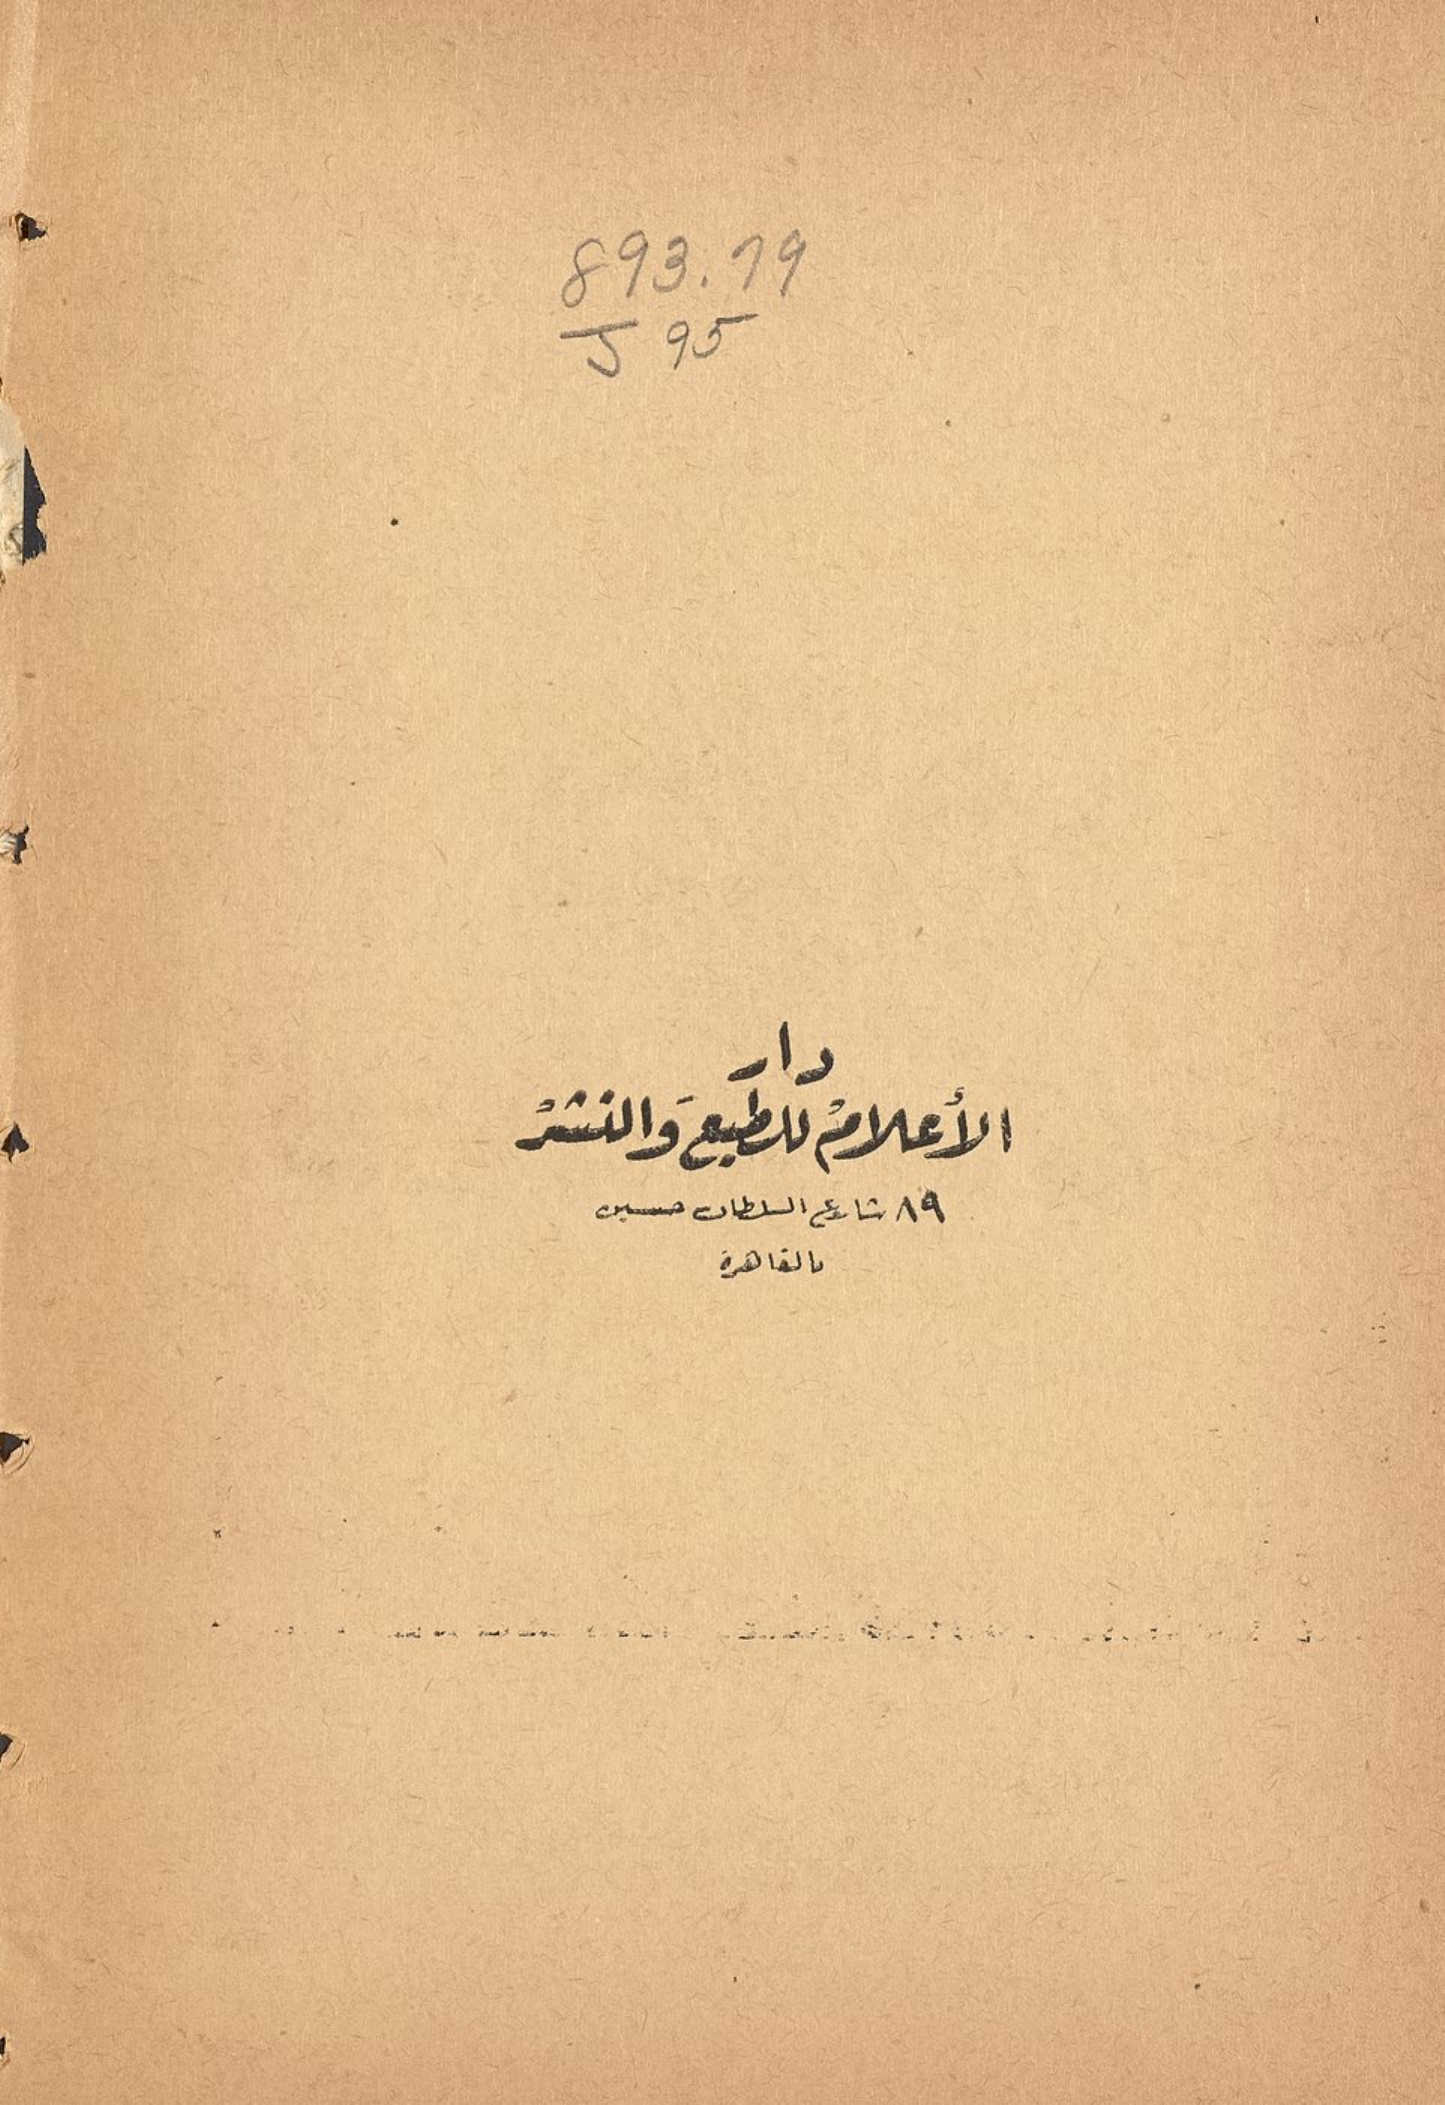 893.79
J 95
دار
الأعلامْ للطبع وَالنشرْ
٨٩ شارع السلطان حسين
بالقاهرة